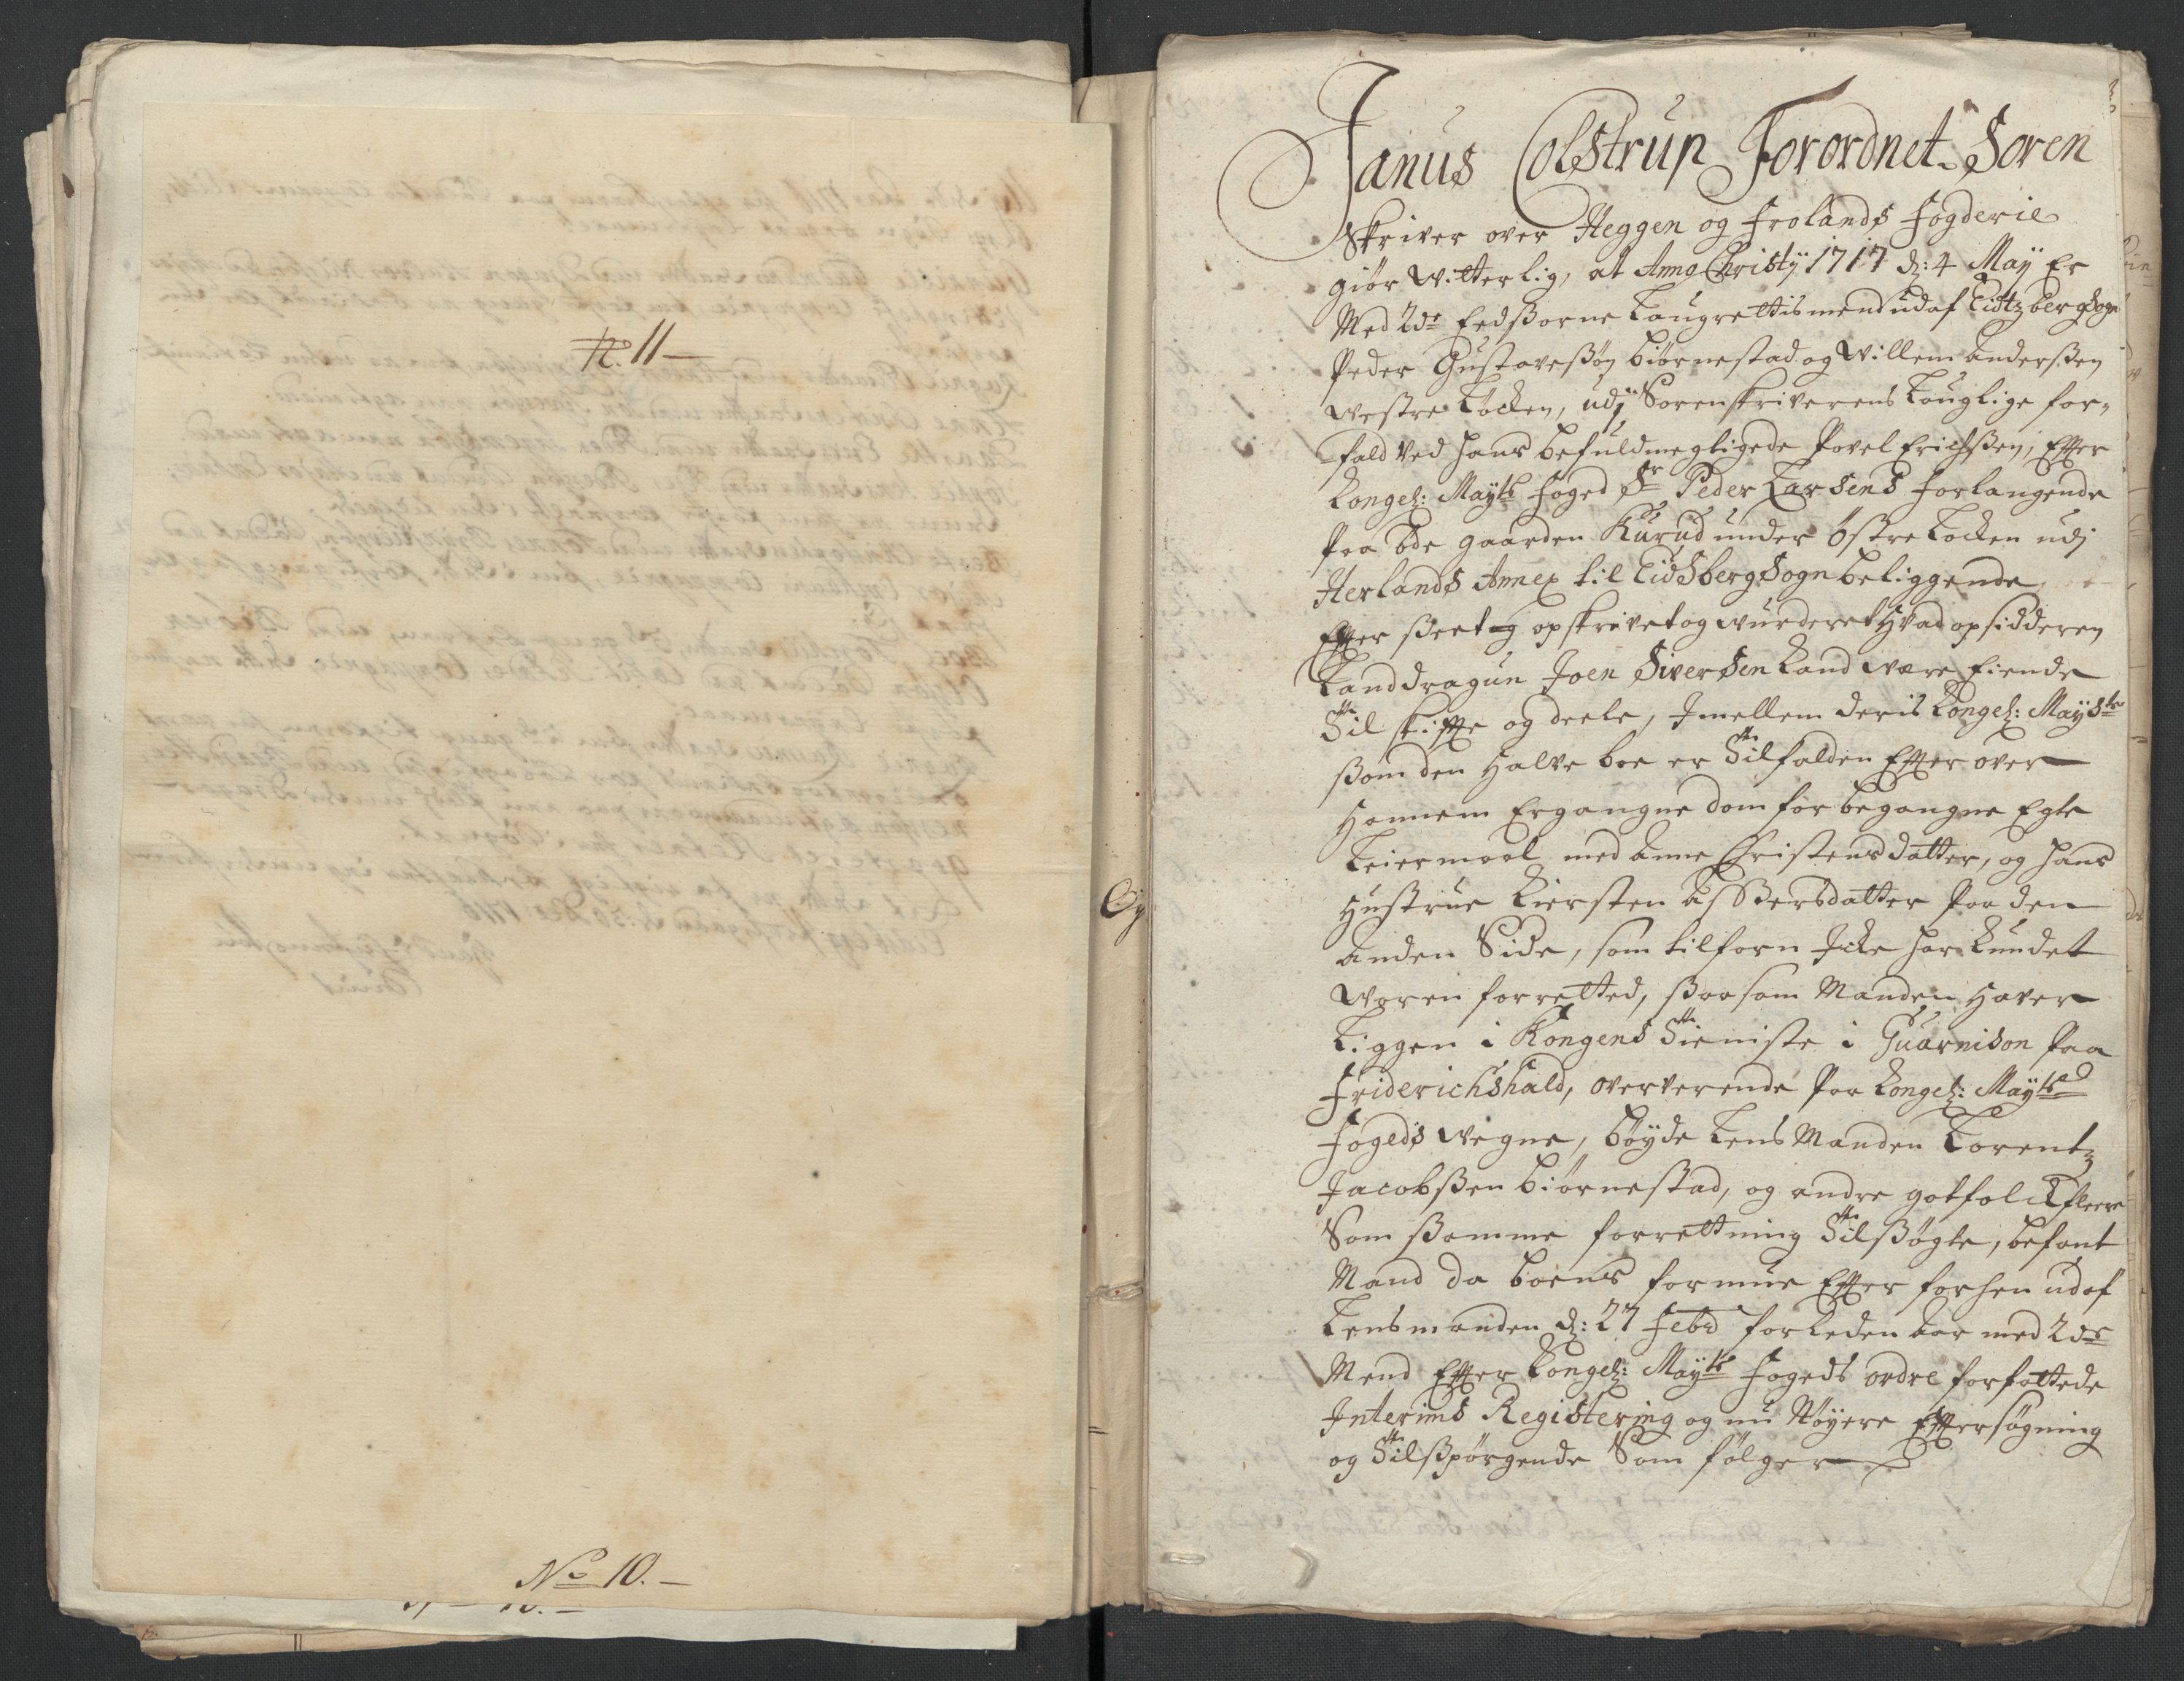 N. 11
No 10.
Janus Colstrup Forordnet Soren
Skriver over Heggen og Frolands Fogderie
giør witterlig, at Anno Christÿ 1717 d: 4 Maÿ Er
Med 2de Eedßorne Laugrettismend udaf Eidtzberg Sogn
Peder Gustavesßøn Biørnestad og Willem Anderßen
westre Løcken, udj Sorenskriverens Louglige for-
fald ved hans befuldmegtigede Povel Erichßen, Effter
Kongel: Maÿts foged Sr Peder Larsens forlangende
Paa øde gaarden Kurud under østre Løcken udj
Herlands Annex til Eidsberg Sogn beliggende
Effter ßeet og opskrevet og wurderet Hvad opsidderen
Landdragun Joen Siversen kand være Eiende
Til skiffte og deele, Jmellem deris Kongel: Maÿsts
ßom den Halve boe er Tilfalden Effter over
Hannem Ergangne dom for begangne Egte
Leiermaal med Anne Christensdatter, og hans
Hustrue Kiersten Asßersdatter Paa den
anden Side, som tilforn Jcke har kundet
woren forretted, ßaasom Manden Haver
Liggen i Kongens Tieniste i Guarnison Paa
Friderichshald, oververende Paa Kongel: Maÿts
Fogeds Wegne, Bøyde Lens Manden Lorentz
Jacobßen Biørnestad, og andre gotfolck fleere
Som ßamme forrettning Tilßøgte, befant
Mand da boens formue Effter forhen udaf
Lensmanden d: 27 Febr forleden Aar med 2de
Mend Effter Kongel: Maÿts Fogeds ordre forfattede
Interims Registering og nu Nøyere Efftersøgning
og Tilßpørgende Som følger